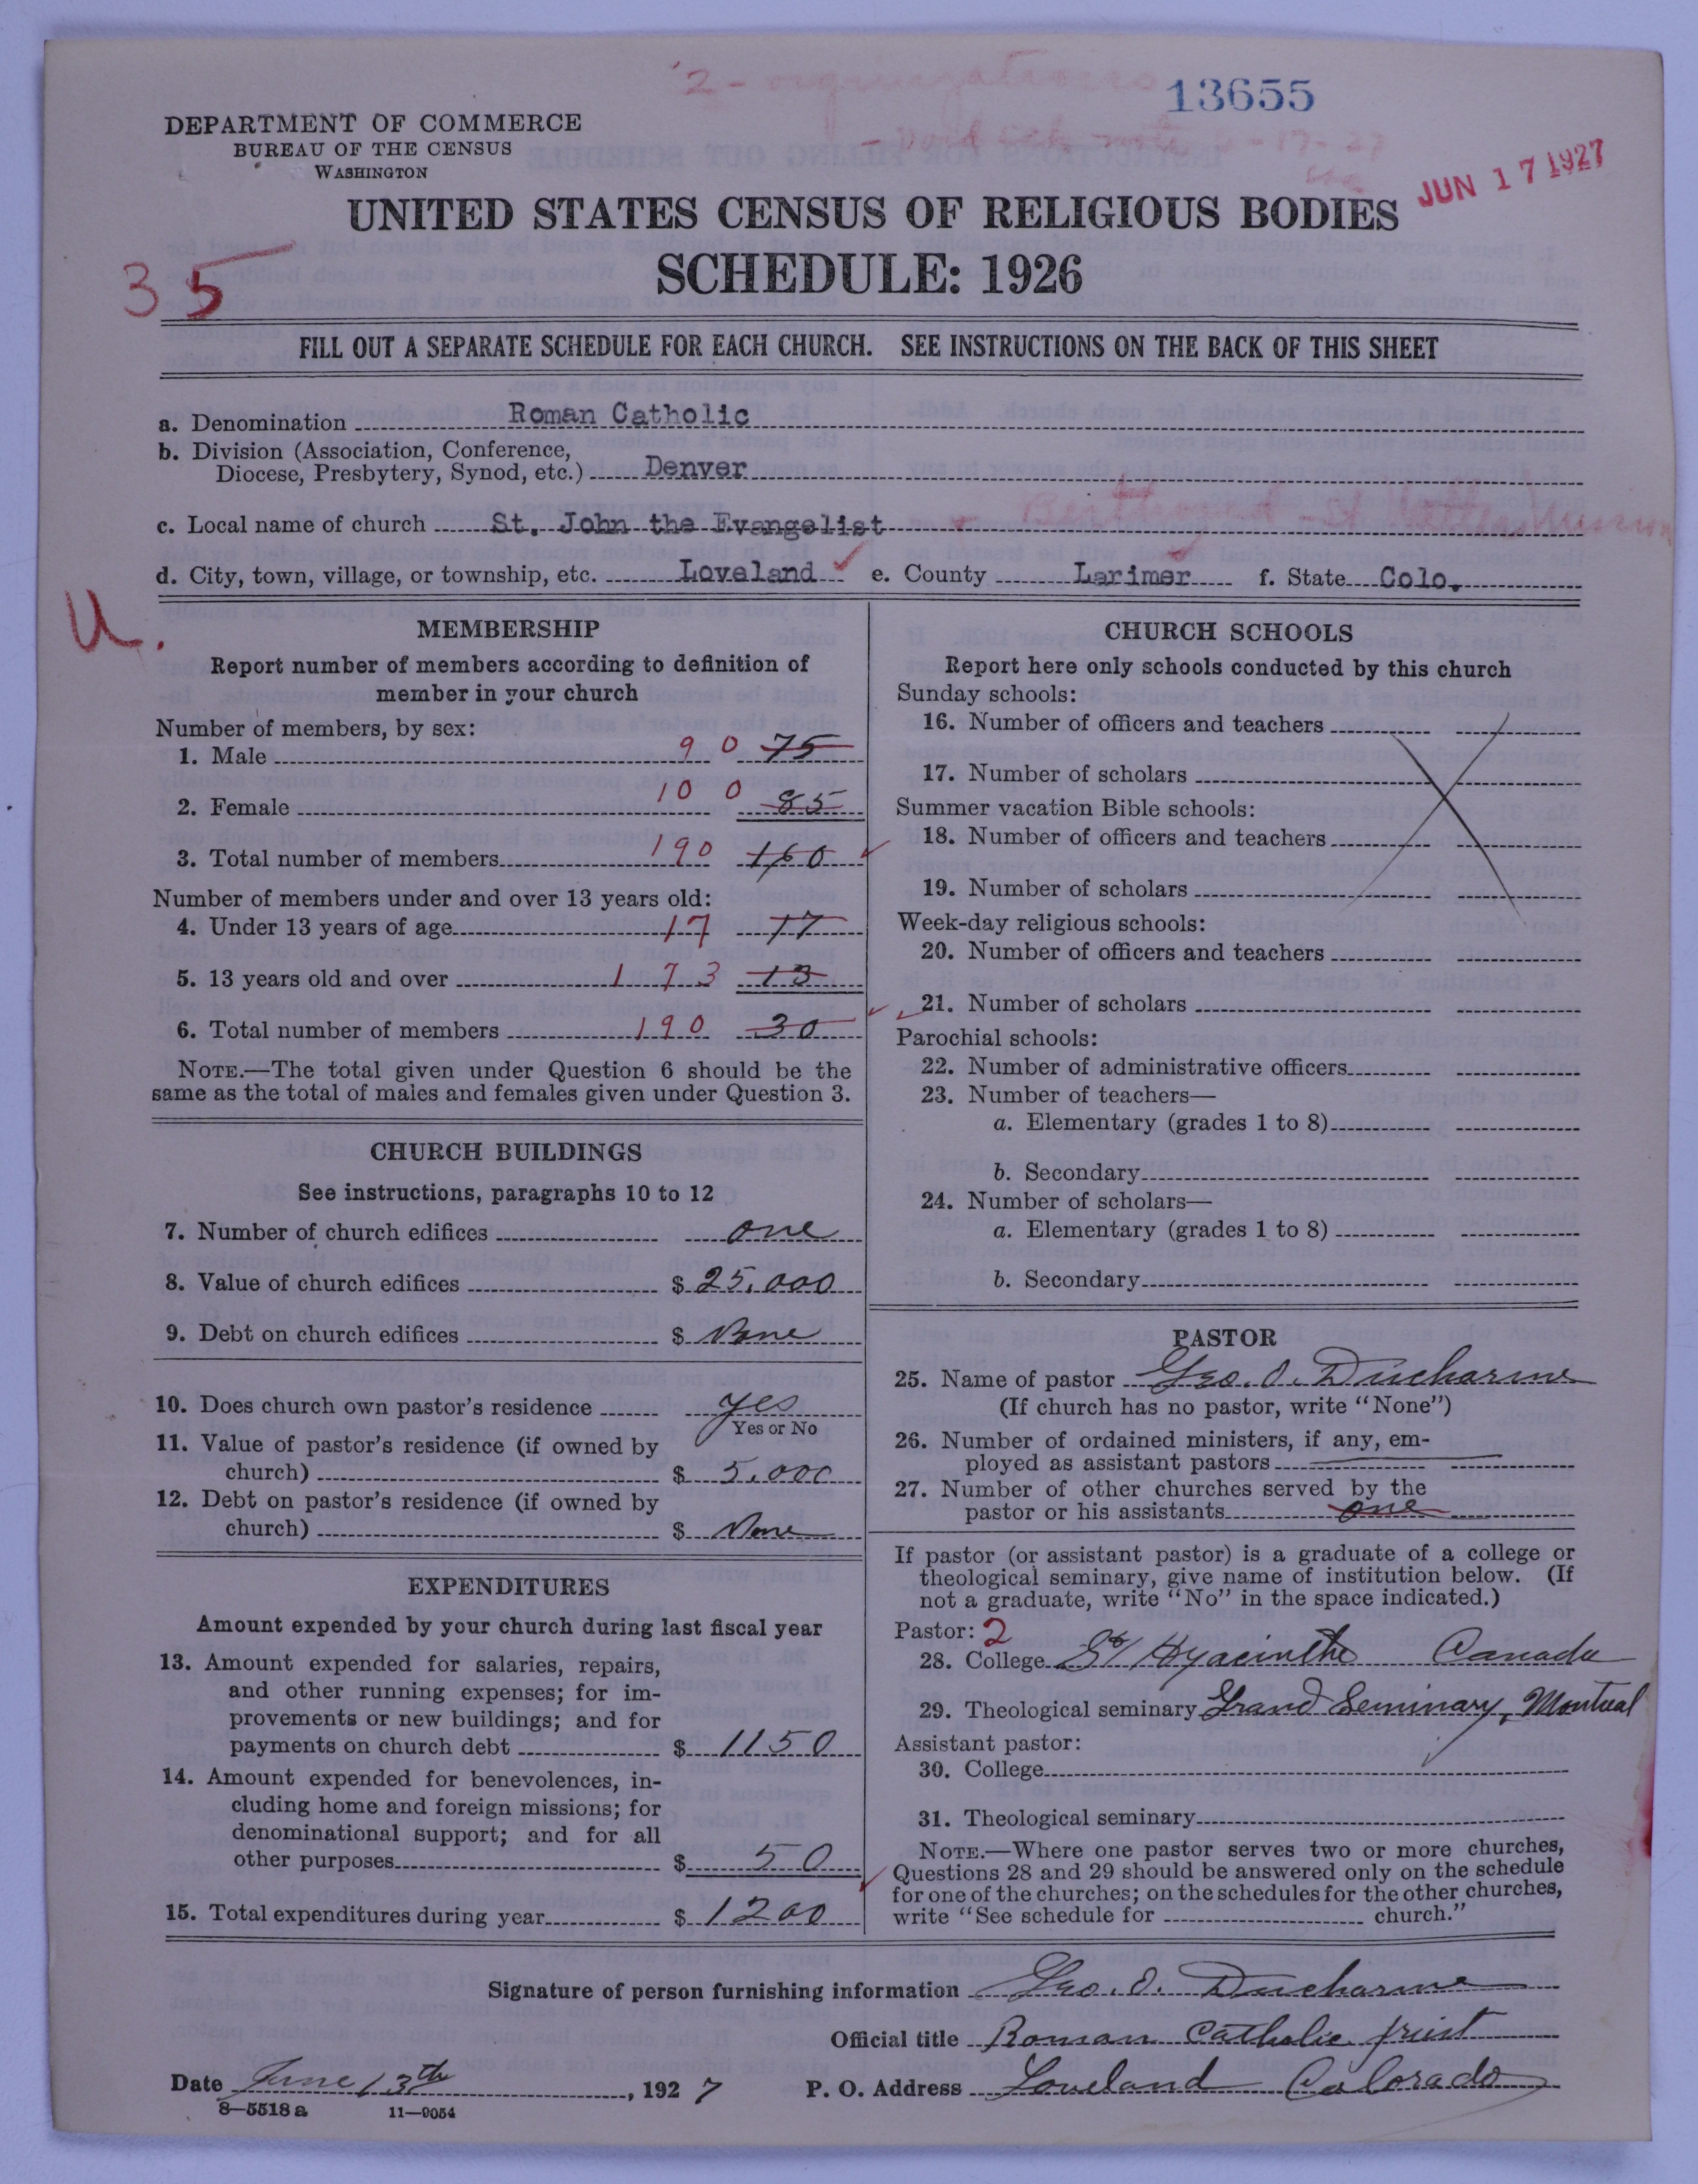 2 - organizations
13655
DEPARTMENT OF COMMERCE
BUREAU OF THE CENSUS
WASHINGTON
JUN 17 1927
UNITED STATES CENSUS OF RELIGIOUS BODIES
SCHEDULE: 1926
35
FILL OUT A SEPARATE SCHEDULE FOR EACH CHURCH. SEE INSTRUCTIONS ON THE BACK OF THIS SHEET
a. Denomination Roman Catholic
b. Division (Association, Conference,
Diocese, Presbytery, Synod, etc.) Denver
c. Local name of church St. John the Evangelist
d. City, town, village, or township, etc. Loveland e. County Larimer f. State Colo.
U.
MEMBERSHIP
Report number of members according to definition of
member in your church
Number of members, by sex:
1. Male 90 75
2. Female 100 85
3. Total number of members 190 160
Number of members under and over 13 years old:
4. Under 13 years of age 17 17
5. 13 years old and over 173 13
6. Total number of members 190 30
NOTE.—The total given under Question 6 should be the
same as the total of males and females given under Question 3.
CHURCH BUILDINGS
See instructions, paragraphs 10 to 12
7. Number of church edifices one
8. Value of church edifices $ 25,000
9. Debt on church edifices $ None
10. Does church own pastor's residence yes
Yes or No
11. Value of pastor's residence (if owned by
church) $ 5,000
12. Debt on pastor's residence (if owned by
church) $ None
EXPENDITURES
Amount expended by your church during last fiscal year
13. Amount expended for salaries, repairs,
and other running expenses; for im-
provements or new buildings; and for
payments on church debt $ 1150
14. Amount expended for benevolences, in-
cluding home and foreign missions; for
denominational support; and for all
other purposes $ 50
15. Total expenditures during year $ 1200
CHURCH SCHOOLS
Report here only schools conducted by this church
Sunday schools:
16. Number of officers and teachers
17. Number of scholars
Summer vacation Bible schools:
18. Number of officers and teachers
19. Number of scholars
Week-day religious schools:
20. Number of officers and teachers
21. Number of scholars
Parochial schools:
22. Number of administrative officers
23. Number of teachers—
a. Elementary (grades 1 to 8)
b. Secondary
24. Number of scholars—
a. Elementary (grades 1 to 8)
b. Secondary
PASTOR
25. Name of pastor Geo. O. Ducharme
(If church has no pastor, write "None")
26. Number of ordained ministers, if any, em-
ployed as assistant pastors
27. Number of other churches served by the
pastor or his assistants one
If pastor (or assistant pastor) is a graduate of a college or
theological seminary, give name of institution below. (If
not a graduate, write "No" in the space indicated.)
Pastor: 2
28. College St Hyacinthe Canada
29. Theological seminary Grand Seminary, Montreal
Assistant pastor:
30. College
31. Theological seminary
NOTE.—Where one pastor serves two or more churches,
Questions 28 and 29 should be answered only on the schedule
for one of the churches; on the schedules for the other churches,
write "See schedule for church."
Signature of person furnishing information Geo. O. Ducharme
Official title Roman Catholic priest
Date June 13th, 1927 P. O. Address Loveland Colorado
8—5518 a 11—9054